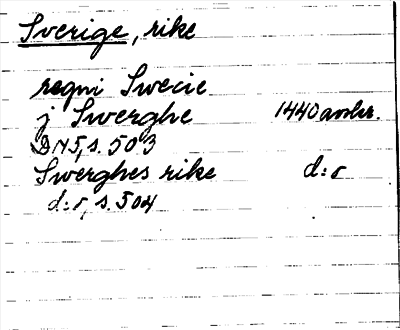 Sverige, rike
regni Swecie
j Swerghe 1440 avskr.
DN5, s. 503
Swerghes rike d:o
d:o, s. 504